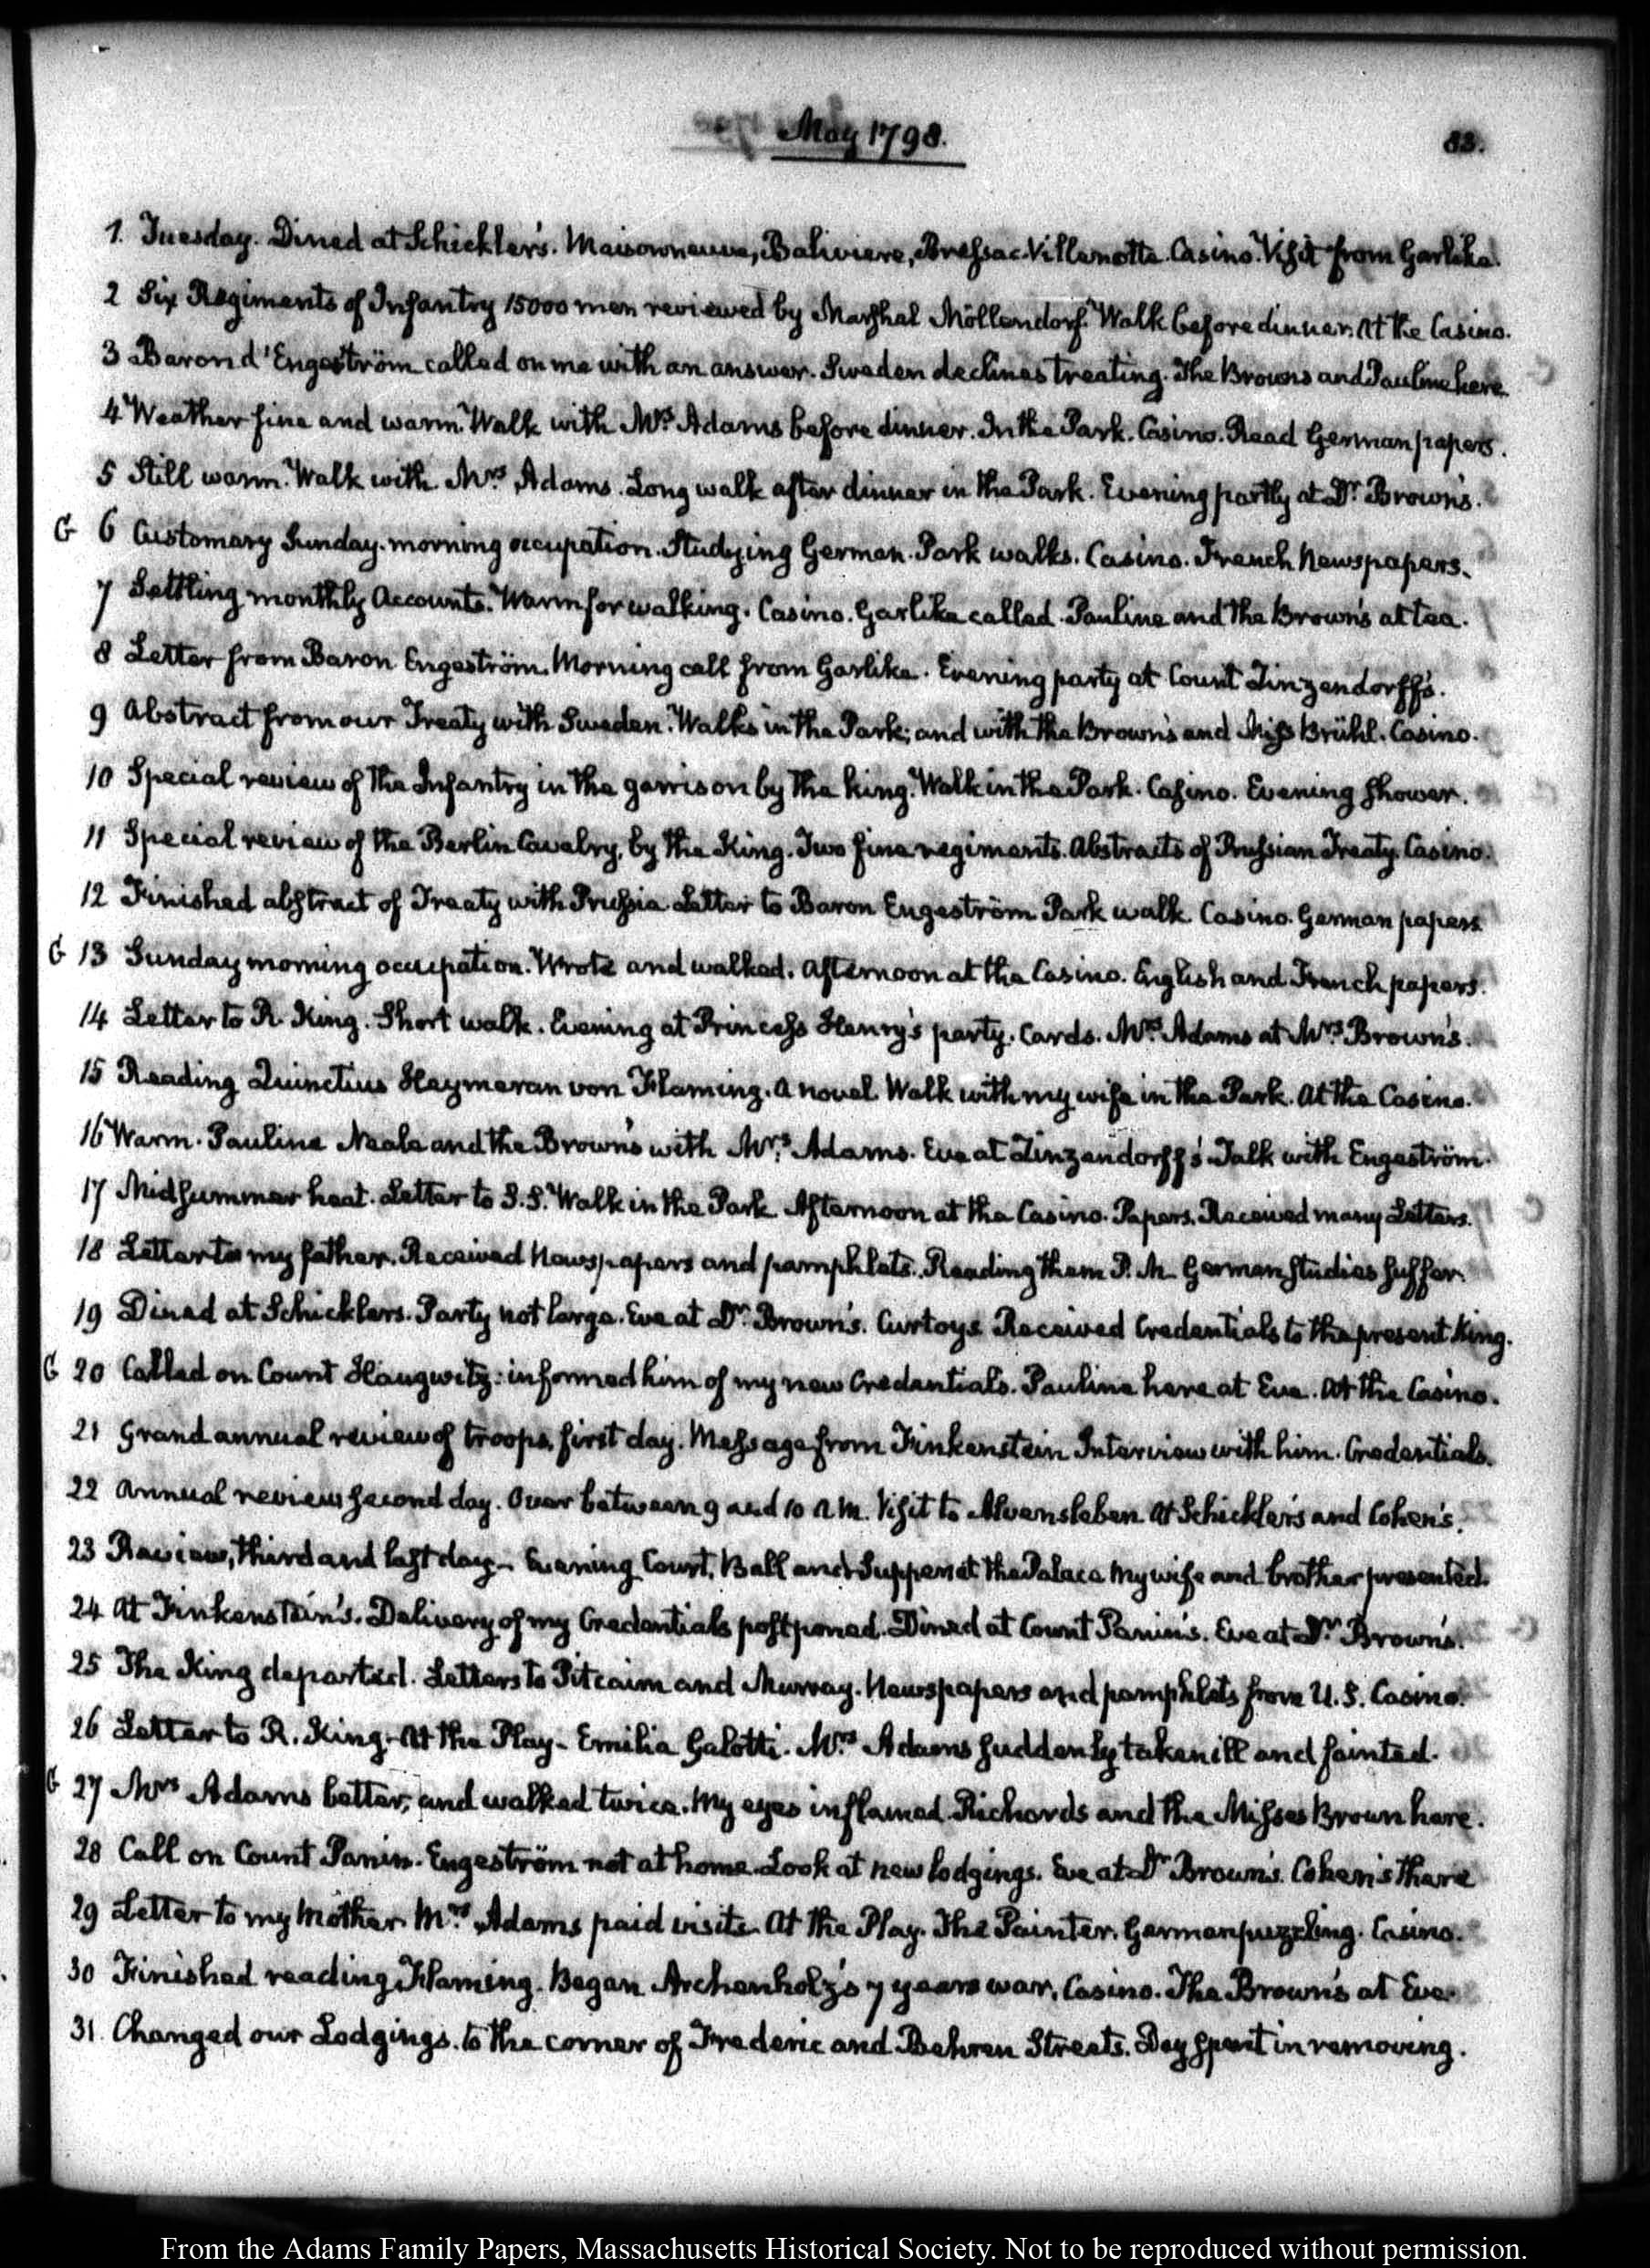 May 1798.
83.
1. Tuesday. Dined at Schickler's. Maisonneuve, Baliviere, Bressac. Villanotte. Casino. Visit from Garlike.
2 Six Regiments of Infantry 15000 men reviewed by Marshal Möllendorf. Walk before dinner. At the Casino.
3 Baron d'Engeström called on me with an answer. Sweden declines treating. The Browns and Pauline here.
4 Weather fine and warm. Walk with Mrs Adams before dinner. In the Park. Casino. Read German papers.
5 Still warm. Walk with Mrs Adams. Long walk after dinner in the Park. Evening partly at Dr Brown's.
G 6 Customary Sunday morning occupation. Studying German. Park walks. Casino. French Newspapers.
7 Settling monthly Accounts. Warm for walking. Casino. Garlike called. Pauline and the Brown's at tea.
8 Letter from Baron Engeström. Morning call from Garlike. Evening party at Count Zinzendorff's.
9 Abstract from our Treaty with Sweden. Walks in the Park; and with the Brown's and Miss Brühl. Casino.
10 Special review of the Infantry in the garrison by the king. Walk in the Park. Casino. Evening shower.
11 Special review of the Berlin Cavalry, by the King. Two fine regiments. Abstracts of Prussian Treaty. Casino.
12 Finished abstract of Treaty with Prussia. Letter to Baron Engeström Park walk. Casino. German papers
G 13 Sunday morning occupation. Wrote and walked. Afternoon at the Casino. English and French papers.
14 Letter to R. King. Short walk. Evening at Princess Henry's party. Cards. Mrs Adams at Mrs Brown's.
15 Reading Quinctius Heymeran von Flaming. A novel. Walk with my wife in the Park. At the Casino.
16 Warm. Pauline Neale and the Brown's with Mrs Adams. Eve at Zinzendorff's. Talk with Engeström.
17 Midsummer heat. Letter to S.S. Walk in the Park Afternoon at the Casino. Papers. Received many Letters.
18 Letter to my father. Received Newspapers and pamphlets. Reading them P.M. German studies suffer.
19 Dined at Schicklers. Party not large. Eve at Dr Brown's. Curtoys Received Credentials to the present King.
G 20 Called on Count Haugwitz: informed him of my new Credentials. Pauline here at Eve. At the Casino.
21 Grand annual review of troops, first day. Message from Finkenstein Interview with him. Credentials.
22 Annual review second day. Over between 9 and 10 A.M. Visit to Alvensleben. At Schickler's and Cohen's.
23 Review, third and last day. Evening Court, Ball and Supper at the Palace My wife and brother presented.
24 At Finkenstein's. Delivery of my Credentials postponed. Dined at Count Panin's. Eve at Dr Brown's.
25 The King departed. Letters to Pitcairn and Murray. Newspapers and pamphlets from U.S. Casino.
26 Letter to R. King. At the Play. Emilia Galotti. Mrs Adams suddenly taken ill and fainted.
G 27 Mrs Adams better, and walked twice. My eyes inflamed. Richards and the Misses Brown here.
28 Call on Count Panin. Engeström not at home. Look at new lodgings. Eve at Dr Brown's. Cohen's there
29 Letter to my Mother. Mrs Adams paid visits. At the Play. The Painter. German puzzling. Casino.
30 Finished reading Flaming. Began Archenholz's 7 years war. Casino. The Brown's at Eve.
31. Changed our Lodgings. to the corner of Frederic and Behren Streets. Day spent in removing.
From the Adams Family Papers, Massachusetts Historical Society. Not to be reproduced without permission.